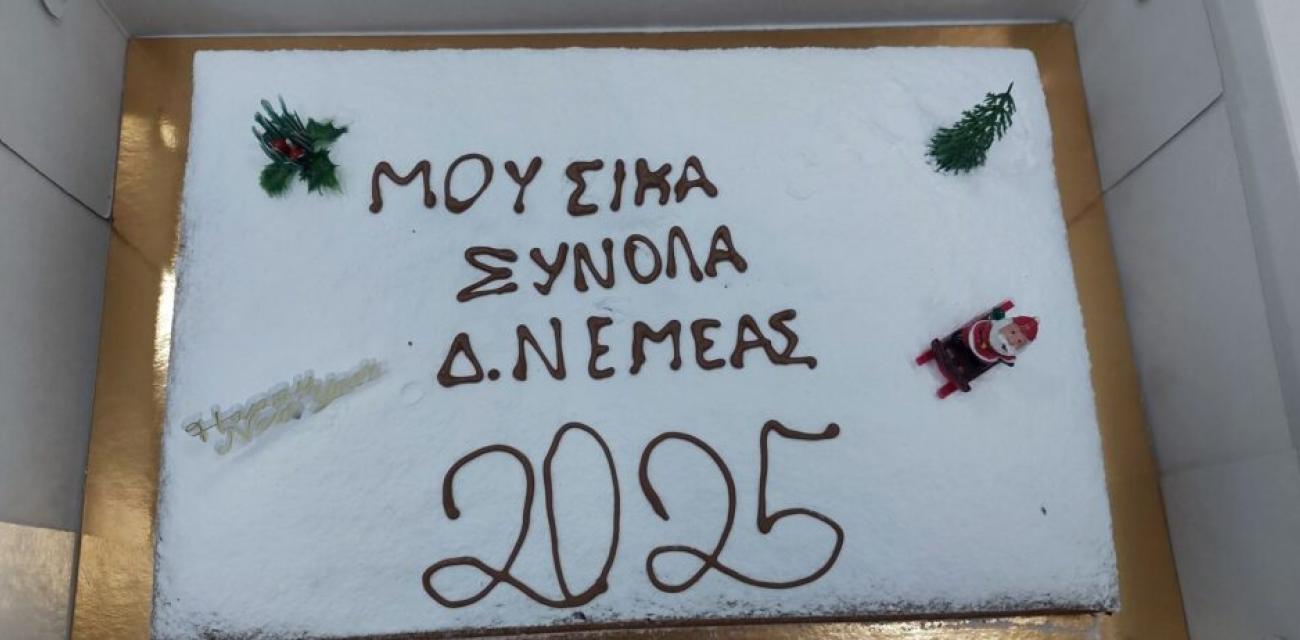 ΜΟΥΣΙΚΑ
ΣΥΝΟΛΑ
Δ.ΝΕΜΕΑΣ
Happy
New Year
2025